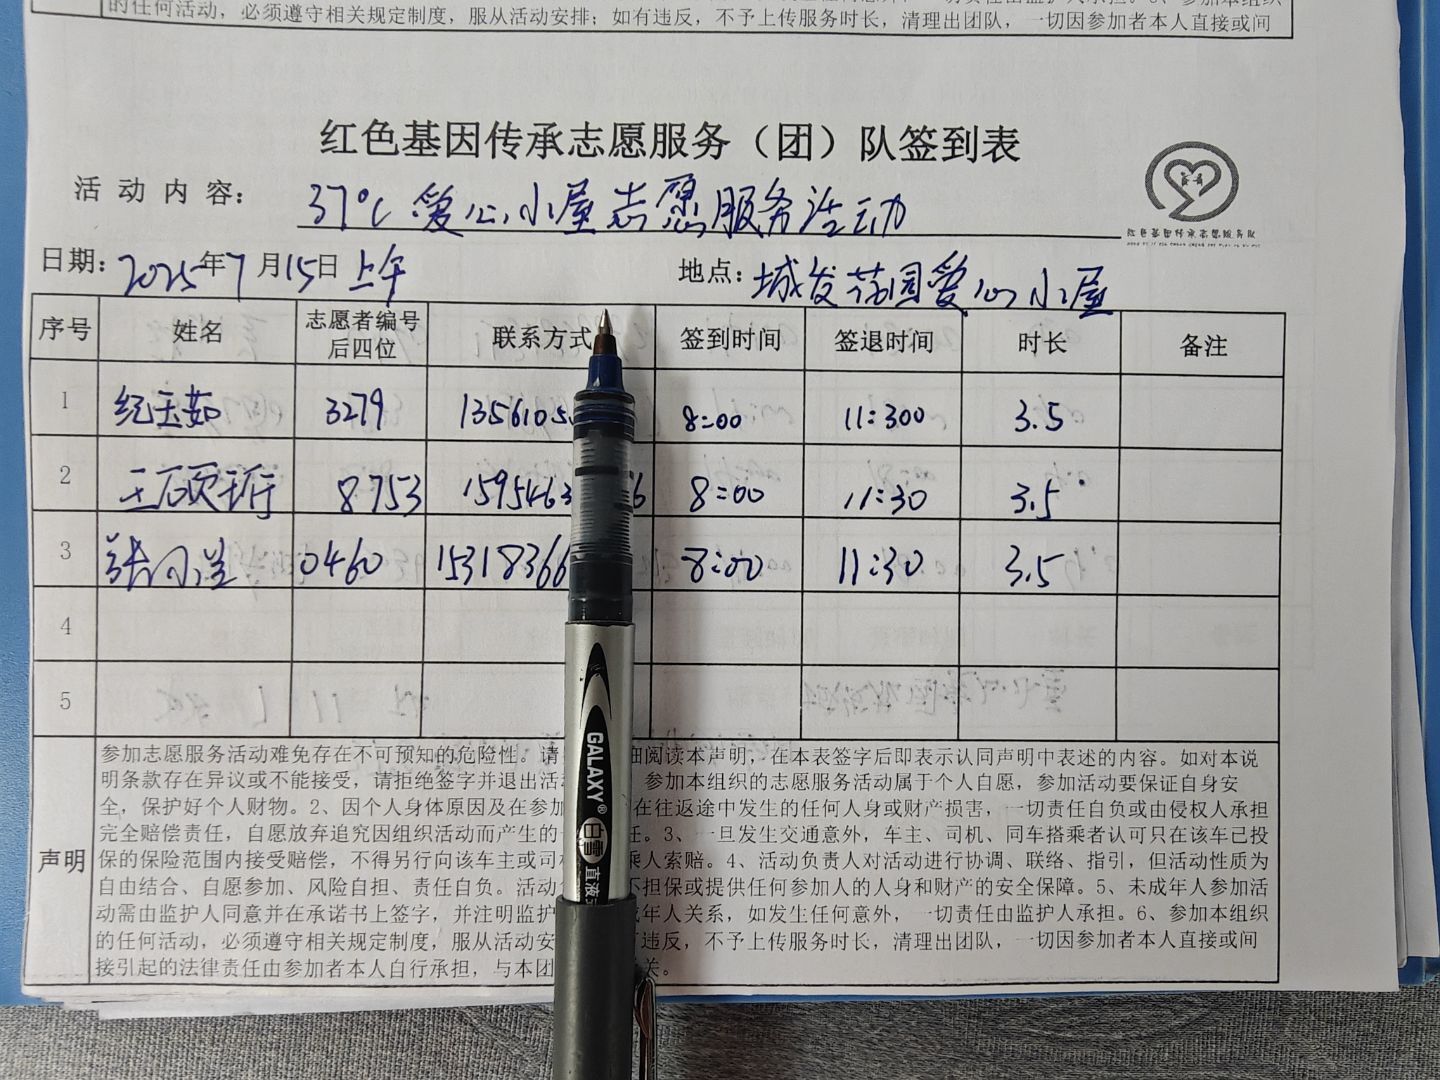 的任何活动，必须遵守相关规定制度，服从活动安排；如有违反，不予上传服务时长，清理出团队，一切因参加者本人直接或间
红色基因传承志愿服务（团）队签到表
活动内容： 37℃爱心小屋志愿服务活动
红色基因传承志愿服务队
日期：2025年7月15日上午 地点：城发花园爱心小屋
序号 姓名 志愿者编号后四位 联系方式 签到时间 签退时间 时长 备注
1 纪玉茹 3279 1356105 8:00 11:300 3.5
2 王硕珩 8753 1595463 6 8:00 11:30 3.5
3 张小兰 0460 15318366 8:00 11:30 3.5
4
5
声明
参加志愿服务活动难免存在不可预知的危险性。请 细阅读本声明，在本表签字后即表示认同声明中表述的内容。如对本说
明条款存在异议或不能接受，请拒绝签字并退出活 参加本组织的志愿服务活动属于个人自愿，参加活动要保证自身安
全，保护好个人财物。2、因个人身体原因及在参加 在往返途中发生的任何人身或财产损害，一切责任自负或由侵权人承担
完全赔偿责任，自愿放弃追究因组织活动而产生的 任。3、一旦发生交通意外，车主、司机、同车搭乘者认可只在该车已投
保的保险范围内接受赔偿，不得另行向该车主或司 乘人索赔。4、活动负责人对活动进行协调、联络、指引，但活动性质为
自由结合、自愿参加、风险自担、责任自负。活动 不担保或提供任何参加人的人身和财产的安全保障。5、未成年人参加活
动需由监护人同意并在承诺书上签字，并注明监护 成年人关系，如发生任何意外，一切责任由监护人承担。6、参加本组织
的任何活动，必须遵守相关规定制度，服从活动安 有违反，不予上传服务时长，清理出团队，一切因参加者本人直接或间
接引起的法律责任由参加者本人自行承担，与本团 关。
GALAXY® 白雪 直液